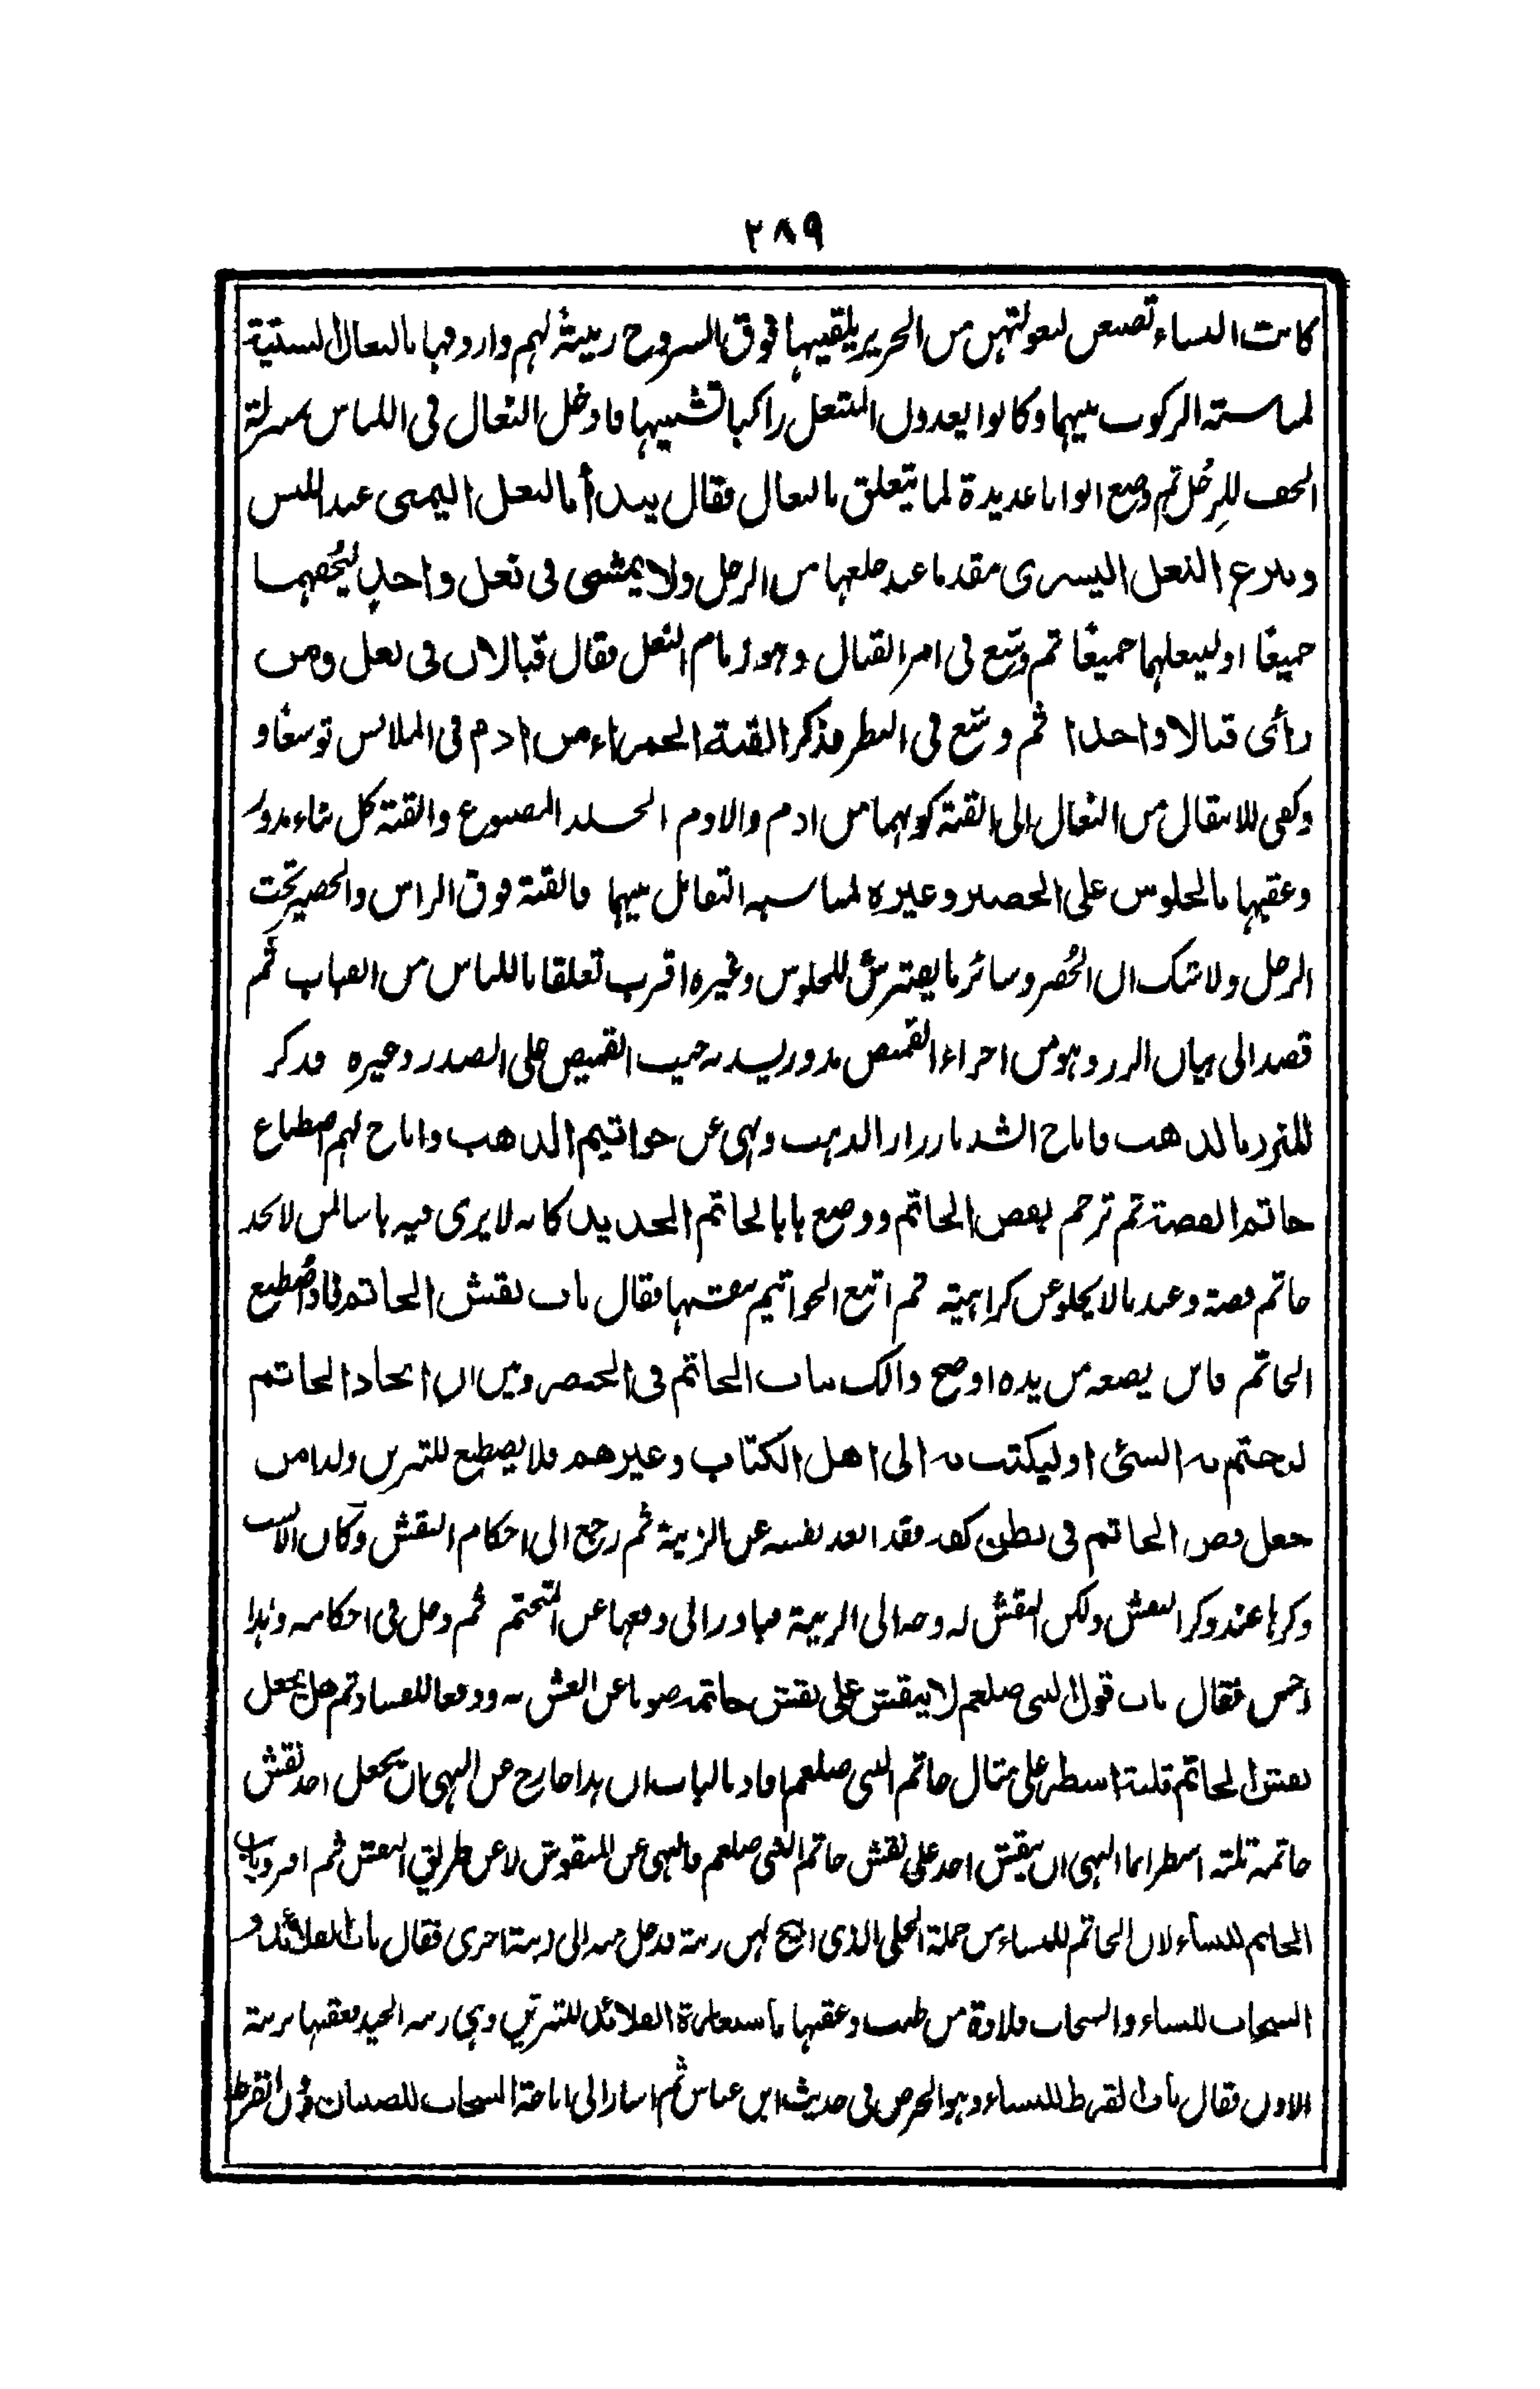 ٢٨٩
كانت النساء تصنعن لبعولتهن من الحرير يلقيها فوق السروج زينة لهم واردفها بالنعال السبتية
لمناسبة الركوب بينهما وكانوا يعدون المنتعل راكبا تشبيها فادخل النعال فى اللباس بمنزلة
الخف للرجل ثم وضع ابوابا عديدة لما يتعلق بالنعال فقال يبدأ بالنعل اليمنى عند اللبس
وينزع النعل اليسرى مقدما عند خلعها من الرجل ولا يمشى فى نعل واحد ليحفهما
جميعًا او لينعلهما جميعًا ثم وسّع فى امر القبال وهو زمام النعل فقال قبالان فى نعل ومن
رأى قبالا واحدا ثم وسّع فى النظر فذكر القبة الحمراء من ادم فى الملابس توسعًا و
وكفى للانتقال من النعال الى القبة كونهما من ادم والادم الجلد المصبوغ والقبة كل بناء مدور
وعقبها بالجلوس على الحصير وغيره لمناسبة التقابل بينهما فالقبة فوق الراس والحصير تحت
الرجل ولا شك ان الحُصر وسائر ما يفترش للجلوس وغيره اقرب تعلقا باللباس من القباب ثم
قصد الى بيان الزرر وهو من اجزاء القميص مدور يسد به جيب القميص على الصدر وغيره فذكر
المزرر بالذهب فاباح الشد بازرار الذهب ونهى عن خواتيم الذهب واباح لهم اصطناع
خاتم الفضة ثم ترجم بفص الخاتم ووضع بابا لخاتم الحديد كانه لا يرى فيه باسا لمن لا يجد
خاتم فضة وعندنا لا يخلو عن كراهية ثم اتبع الخواتيم بنقشها فقال باب نقش الخاتم فاذا اصطنع
الخاتم فاين يضعه من يده اوضح ذالك بباب الخاتم فى الخنصر وبين ان اتخاذ الخاتم
ليختم به الشئ او ليكتب به الى اهل الكتاب وغيرهم فلا يصطنع للتزين ولذا من
جعل فص الخاتم فى بطن كفه فقد ابعد نفسه عن الزينة ثم رجع الى احكام النقش وكان الانسب
ذكرها عند ذكر النقش ولكن النقش له وجه الى الزينة فبادر الى دفعها عن التختم ثم دخل فى احكامه وهذا
احسن فقال باب قول النبى صلعم لا ينقش على نقش خاتمه صونا عن الغش به ودفعا للفساد ثم هل يجعل
نقش الخاتم ثلثة اسطر على مثال خاتم النبى صلعم افاد بالباب ان هذا خارج عن النهى بان يجعل احد نقش
خاتمه ثلثة اسطر انما النهى ان ينقش احد على نقش خاتم النبى صلعم فالنهى عن المنقوش لا عن طريق النقش ثم افرد باب
الخاتم للنساء لان الخاتم للنساء من جملة الحلى الذى ابيح لهن زينة فدخل منه الى زينة اخرى فقال باب القلائد و
السخاب للنساء والسخاب قلادة من طيب وعقبها باستعارة القلائد للتزين وهى زينة الجيد فعقبها بزينة
الاذن فقال باب القرط للنساء وهو الخرص فى حديث ابن عباس ثم اشار الى اباحة السخاب للصبيان دون القرط